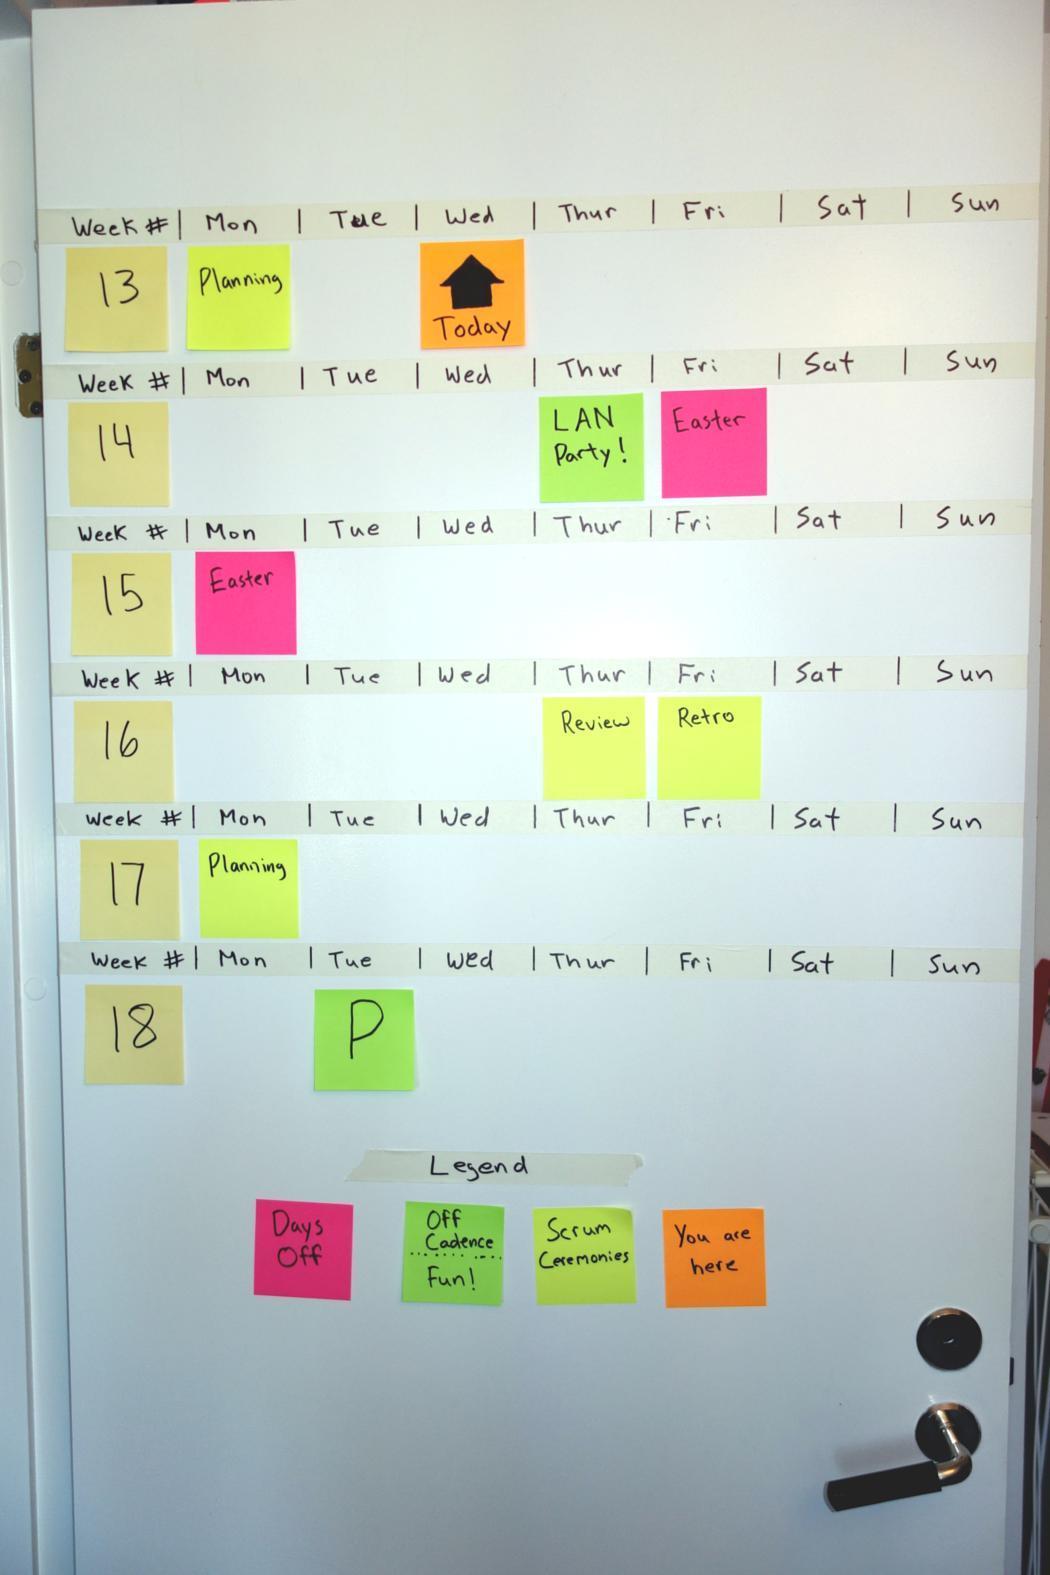 Week # | Mon | Tue | Wed | Thur | Fri | Sat | Sun
13 Planning Today
Week # | Mon | Tue | Wed | Thur | Fri | Sat | Sun
14 LAN Party! Easter
Week # | Mon | Tue | Wed | Thur | Fri | Sat | Sun
15 Easter
Week # | Mon | Tue | Wed | Thur | Fri | Sat | Sun
16 Review Retro
Week # | Mon | Tue | Wed | Thur | Fri | Sat | Sun
17 Planning
Week # | Mon | Tue | Wed | Thur | Fri | Sat | Sun
18 P
Legend
Days
Off
Off
Cadence
Fun!
Scrum
Ceremonies
You are
here